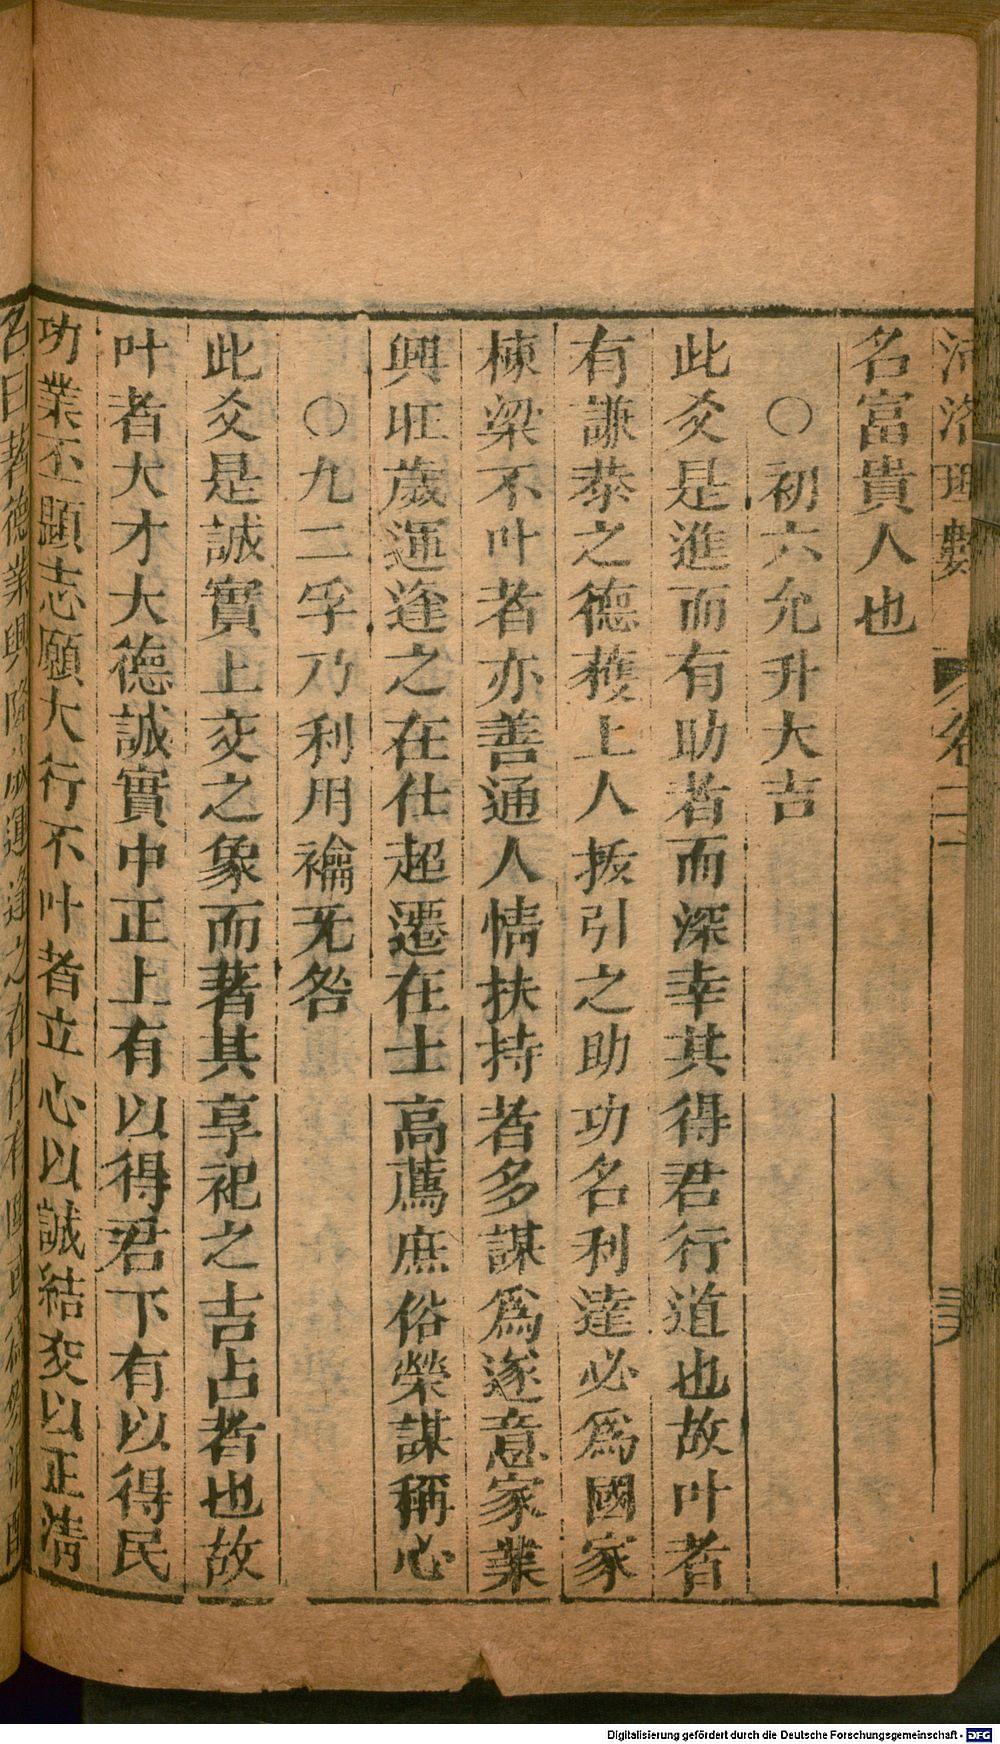 河洛理數
卷二
名富貴人也
○初六允升大吉
此爻是進而有助者而深幸其得君行道也故叶者
有謙恭之德獲上人拔引之助功名利達必爲國家
棟梁不叶者亦善通人情扶持者多謀爲遂意家業
興旺歲運逢之在仕超遷在士高薦庶俗榮謀稱心
○九二孚乃利用禴无咎
此爻是誠實上交之象而著其享祀之吉占者也故
叶者大才大德誠實中正上有以得君下有以得民
功業丕顯志願大行不叶者立心以誠結交以正清
名日著德業興隆歲運逢之在仕有
Digitalisierung gefördert durch die Deutsche Forschungsgemeinschaft - DFG